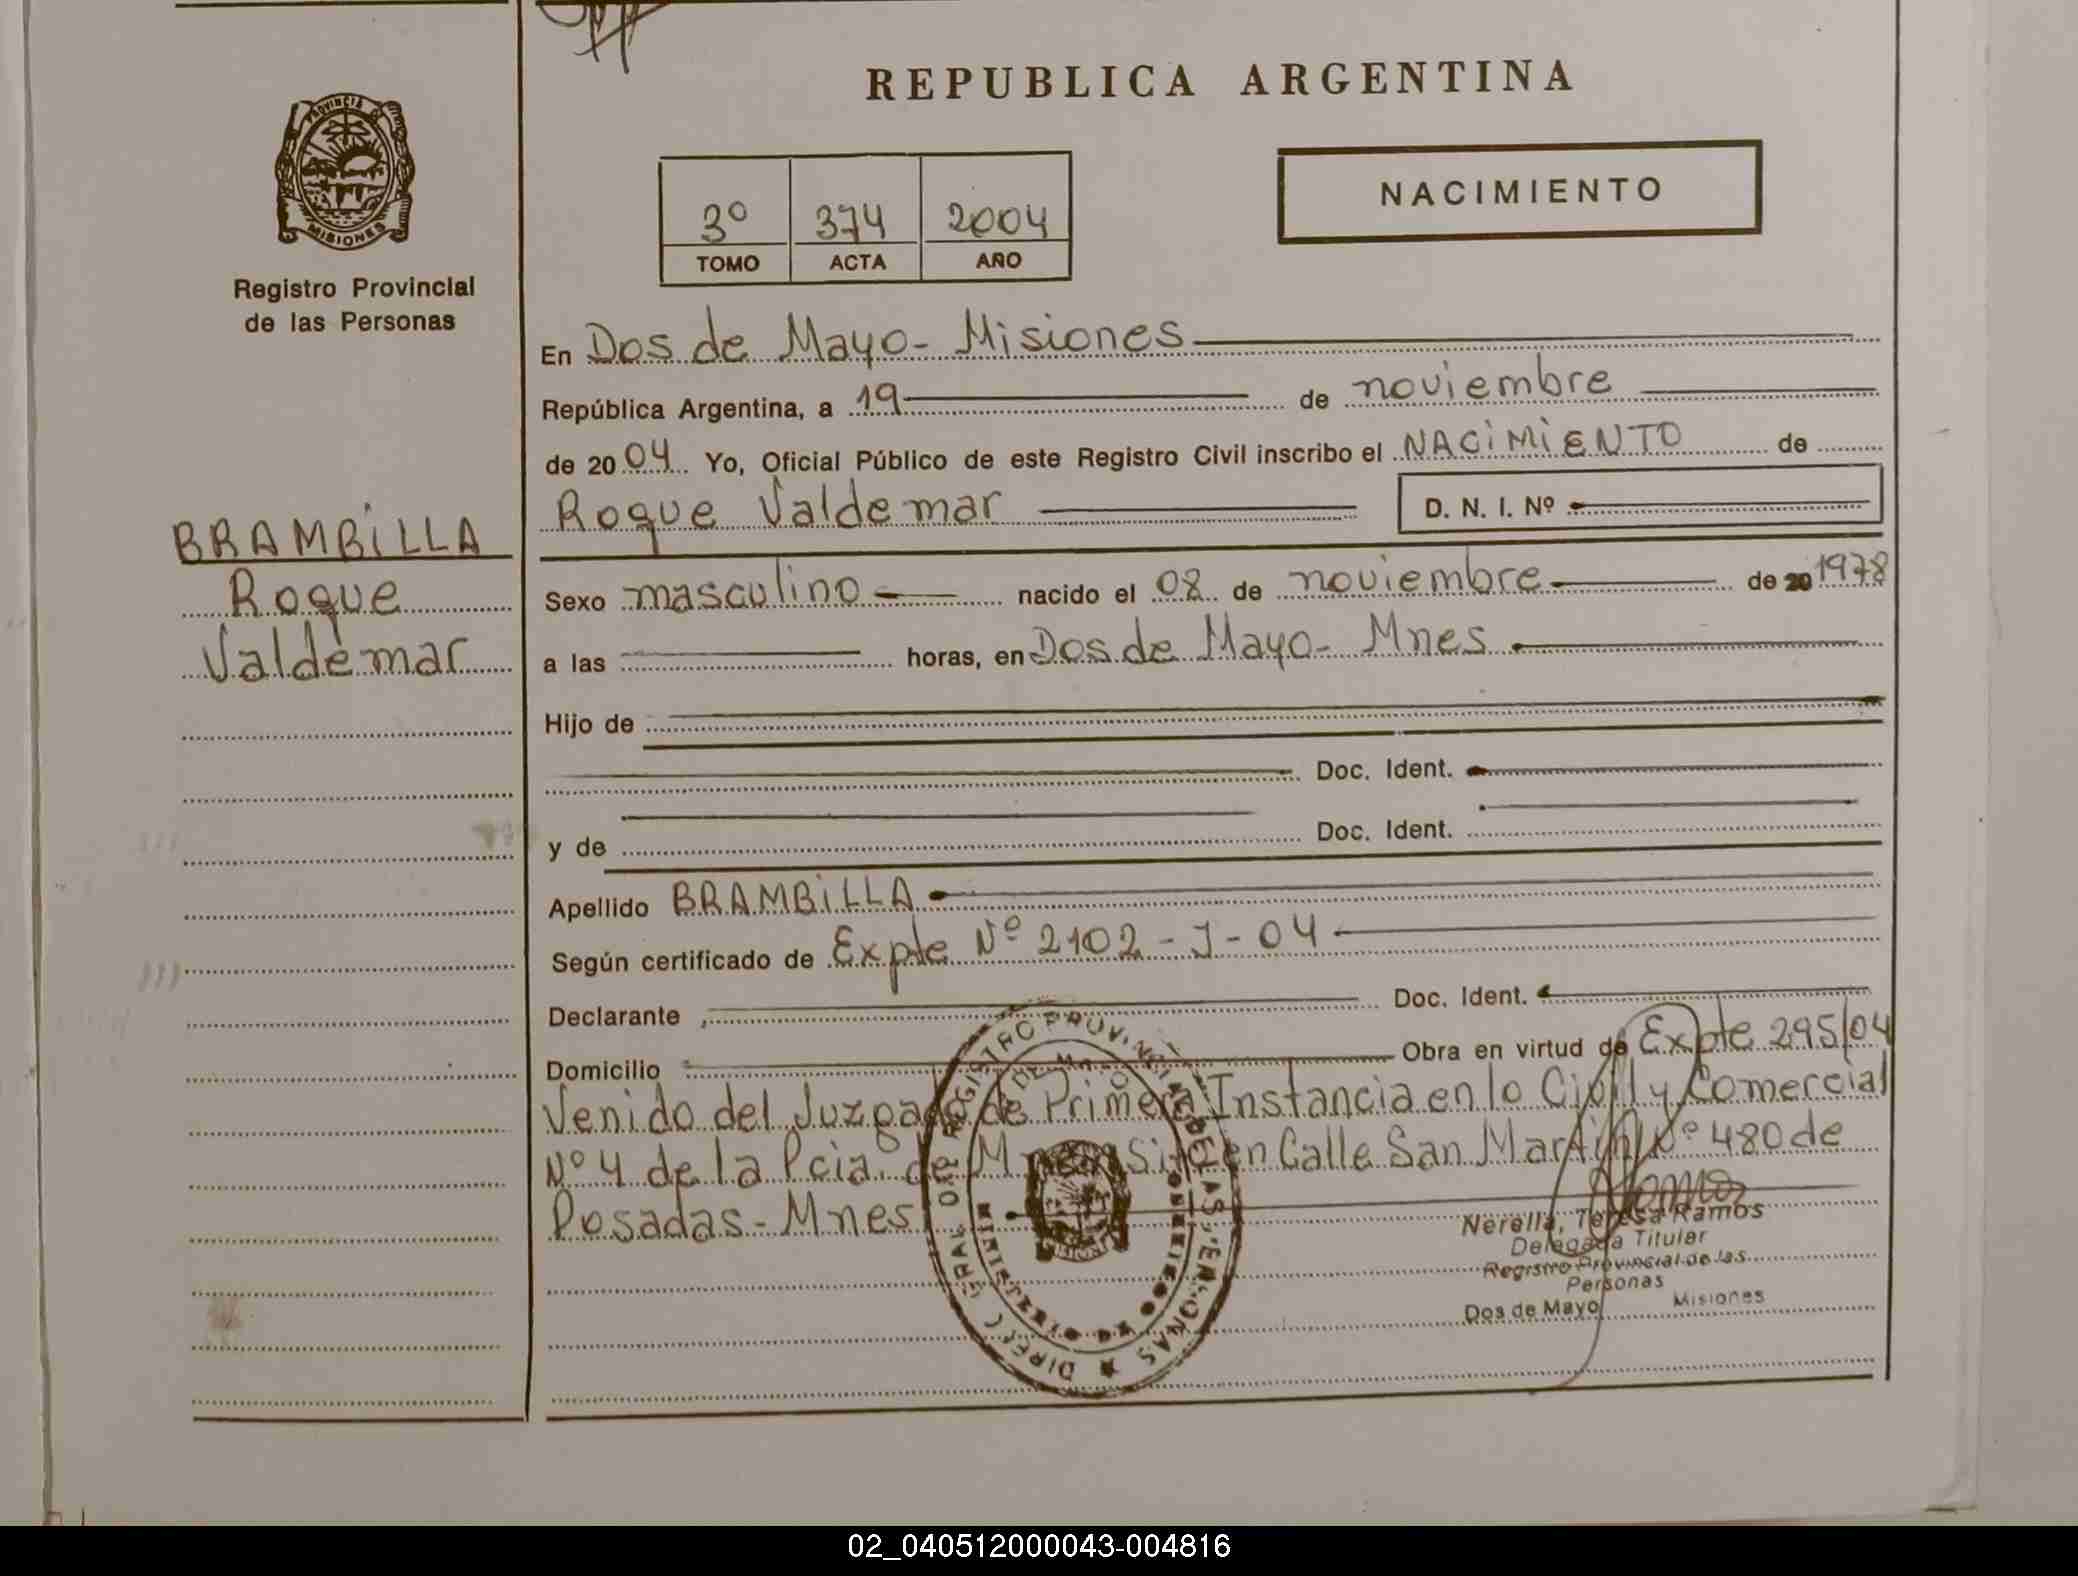 REPUBLICA ARGENTINA
PROVINCIA DE
MISIONES
Registro Provincial
de las Personas
NACIMIENTO
3º 374 2004
TOMO ACTA AÑO
En Dos de Mayo - Misiones
República Argentina, a 19 de noviembre
de 2004 Yo, Oficial Público de este Registro Civil inscribo el NACIMIENTO de
Roque Valdemar D. N. I. Nº
BRAMBILLA
Roque
Valdemar
Sexo masculino nacido el 08 de noviembre de 20 1978
a las horas, en Dos de Mayo - Mnes
Hijo de
Doc. Ident.
y de Doc. Ident.
Apellido BRAMBILLA
Según certificado de Expte Nº 2102 - J - 04
Declarante Doc. Ident.
Domicilio Obra en virtud de Expte 295/04
Venido del Juzgado de Primera Instancia en lo Civil y Comercial
Nº 4 de la Pcia. de Mnes Sito en Calle San Martin Nº 480 de
Posadas - Mnes
Nerella, Teresa Ramos
Delegada Titular
Registro Provincial de las
Personas
Dos de Mayo Misiones
02_040512000043-004816